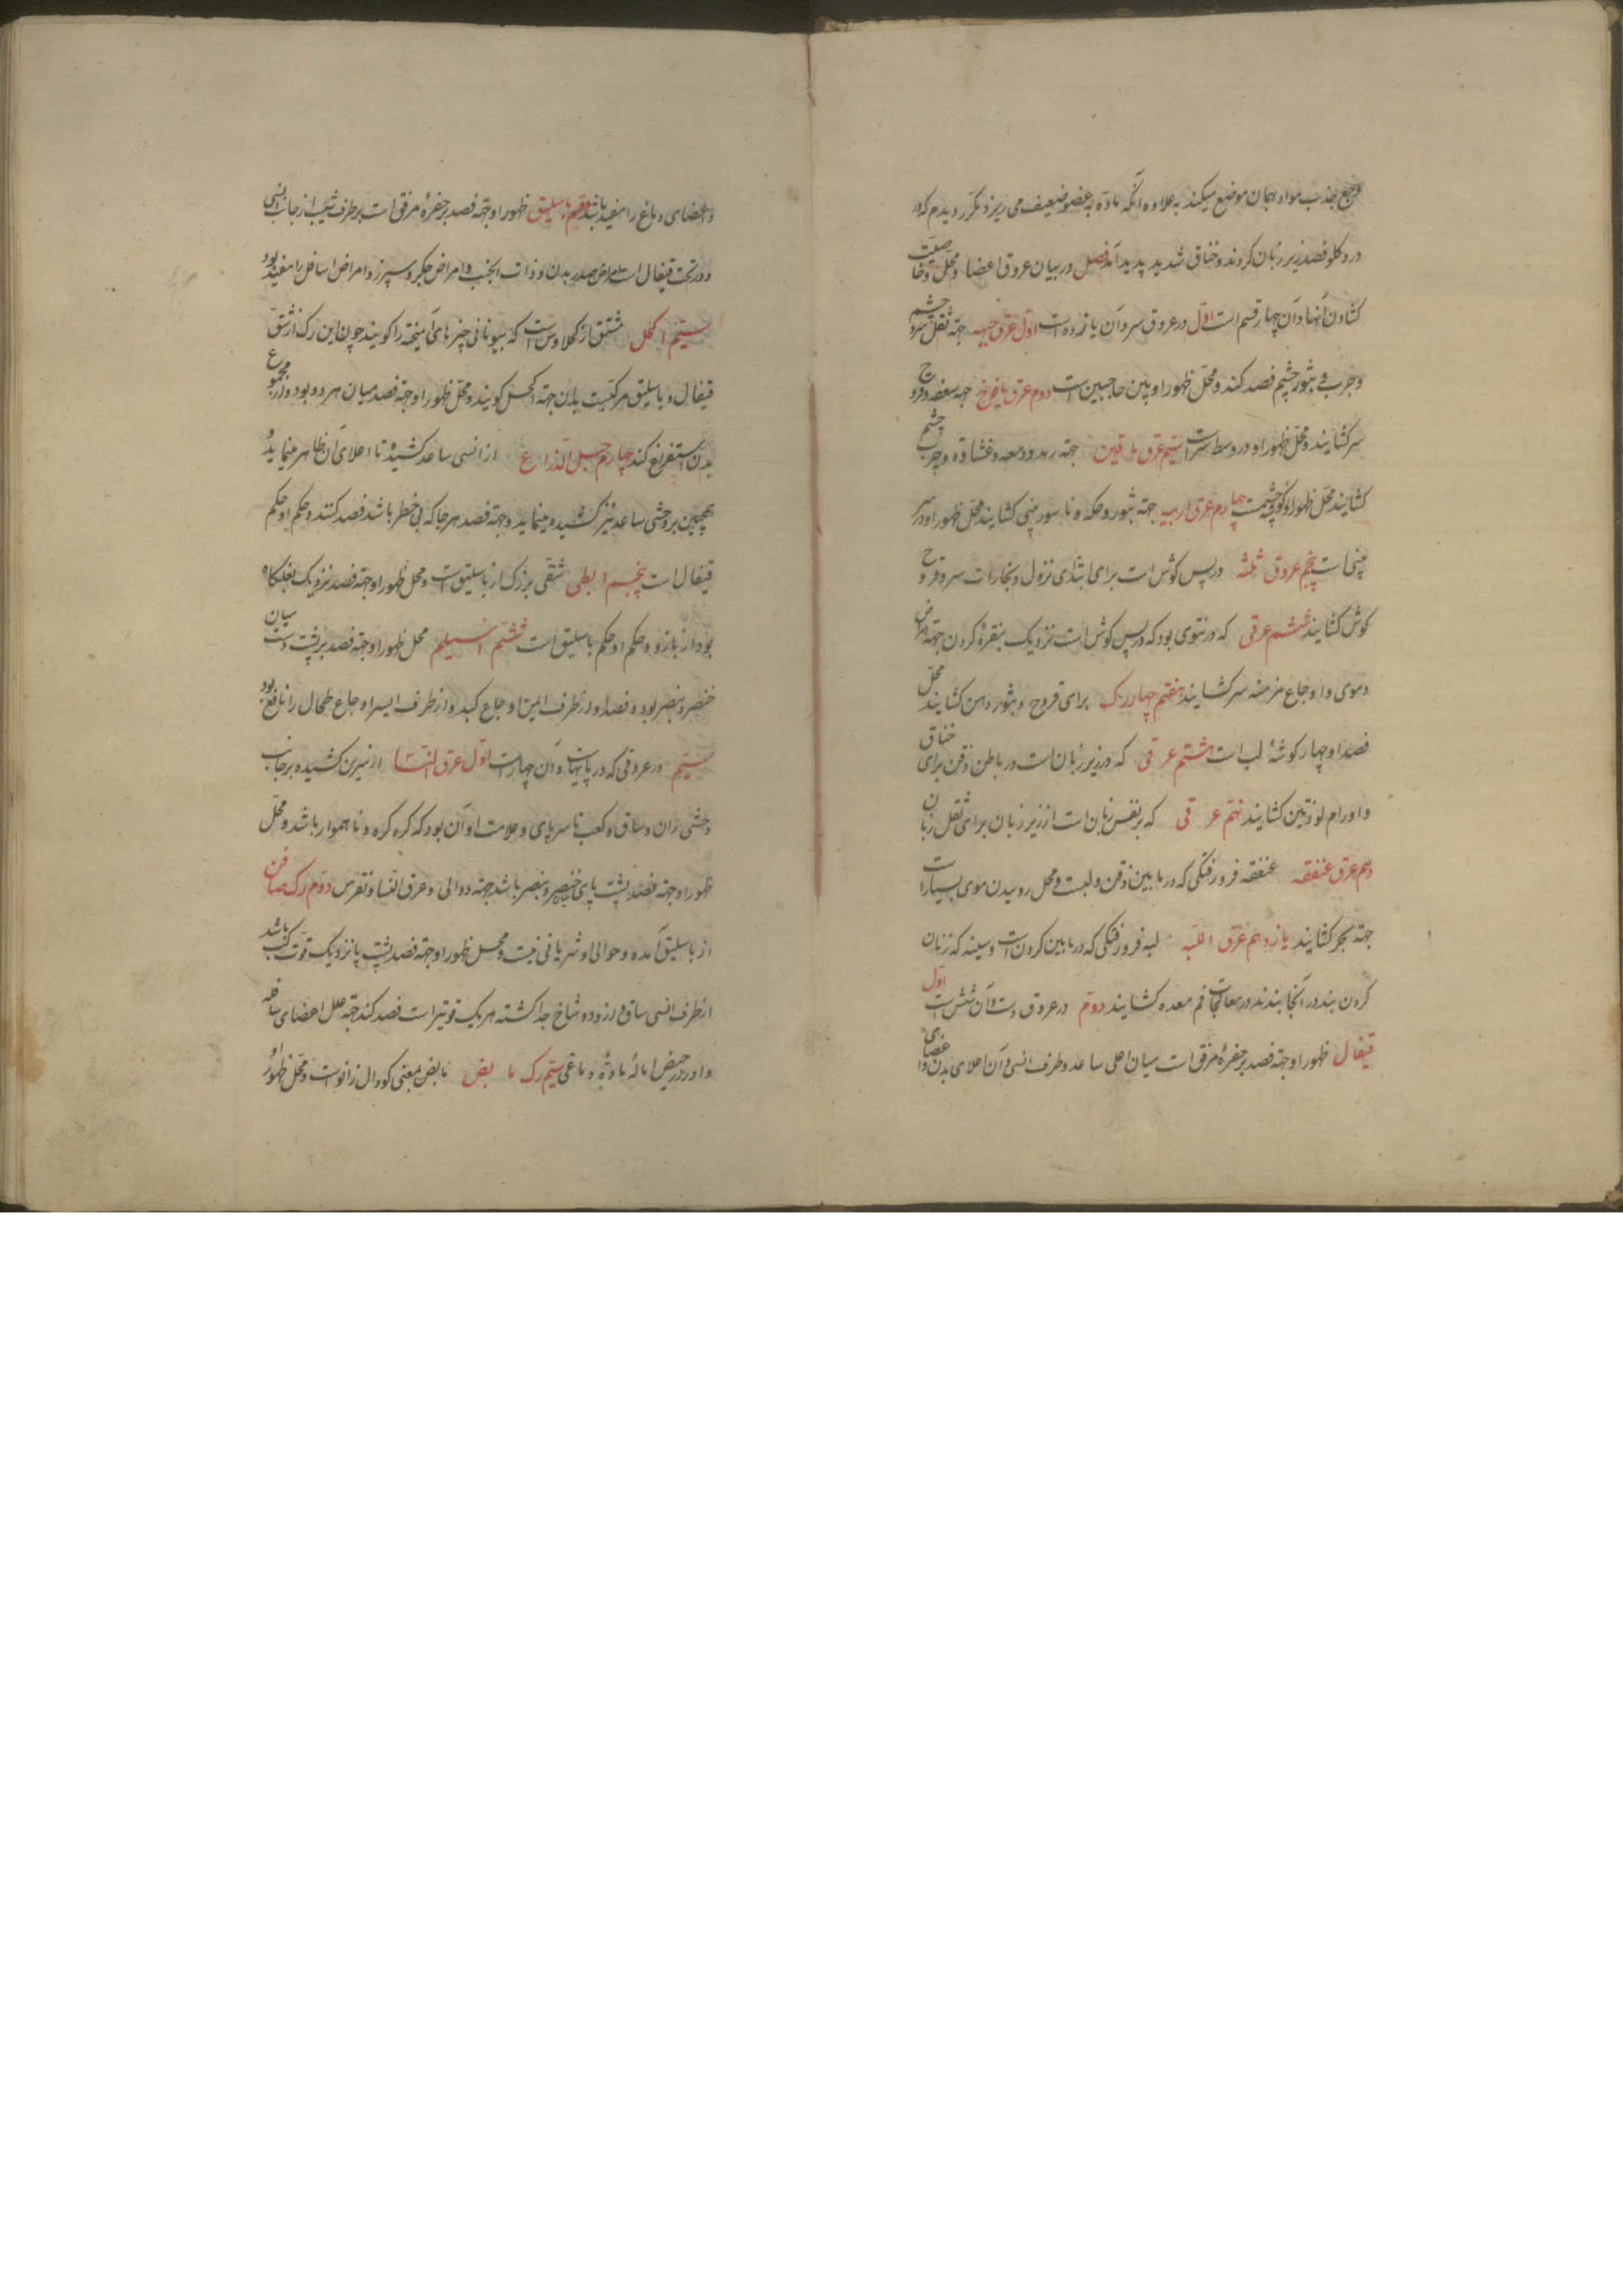 وجع جذب مواد بهمان موضع میکند بعلاوه آنکه ماده بعضو ضعیف می ریزد مکرر دیدم که در
درد کلو فصد زیر زبان کردند و خناق شدید پدید آمد فصل در بیان عروق اعضا و محل و خاصیت
کشادن آنها و آن چهار قسم است اول در عروق سر و آن یازده است اول عرق جبهه جهة ثقل سر و چشم
و جرب و بثور چشم فصد کنند و محل ظهور او بین حاجبین است دوم عرق یافوخ جهة سعفه و قروح
سر کشایند و محل ظهور او در وسط سر است سیم عرق ماقین جهة رمد و دمعه و غشاوه و جرب چشم
کشایند محل ظهور او کوشه چشمست چهارم عرق ارنبه جهة بثور و حکه و ناسور بینی کشایند محل ظهور او در سر
بینی است پنجم عروق ثلثه در پس کوش است برای ابتدای نزول و بخارات سر و قروح
کوش کشایند ششم عرقی که در نتوی بود که در پس کوش است نزدیک بنقره کردن جهة امراض
دموی و اوجاع مزمنه سر کشایند هفتم چهار رک برای قروح و بثور دهن کشایند محل
فصد او چهار کوشهٔ لب است هشتم عرقی که در زیر زبان است در باطن ذقن برای خناق
و اورام لوزتین کشایند نهم عرقی که بر نفس زبان است از زیر زبان برای ثقل زبان
دهم عرق عنفقه عنفقه فرورفتکی که در ما بین ذقن و لبست و محل روییدن موی بسیار است
جهة بخر کشایند یازدهم عرق اللبه لبه فرورفتکی که در ما بین کردن است و سینه که زنان
کردن بند در آنجا بندند در معالجات فم معده کشایند دوم در عروق دست و آن شش است اول
قیفال ظهور او جهة فصد بر حفرهٔ مرفق است میان اعلی ساعد و طرف انسی و آن اعلای بدن و اعضای
و اعضای دماغ را مفید باشد دویم باسلیق ظهور او جهة فصد بر حفرهٔ مرفق است بر طرف شیب از جانب انسی
و در تحت قیفال است امراض صدر بدن و ذات الجنب و امراض جکر و سپرز و امراض اسافل را مفید بود
سیم اکحل مشتق از کلاوس است که بیونانی چیزهای آمیخته را کویند چون این رک از شق
قیفال و باسلیق مرکبست بدان جهة اکحل کویند و محل ظهور او جهة فصد میان هر دو بود و از مجموع
بدن استفراغ کند چهارم حبل الذراع از انسی ساعد کشیده تا اعلای آن ظاهر مینماید و
همچنین بر وحشی ساعد نیز کشیده مینماید و جهة فصد هر جا که بی خطر باشد فصد کنند و حکم او حکم
قیفال است پنجم ابطی شقی بزرک از باسلیق است و محل ظهور او جهة فصد نزدیک بغلکاه
بود از بازو و حکم او حکم باسلیق است ششم اسیلم محل ظهور او جهة فصد بر پشت دست میان
خنصر و بنصر بود و فصد او از طرف ایمن اوجاع کبد و از طرف ایسر اوجاع طحال را نافع بود
سیم در عروقی که در پاست و آن چهار است اول عرق النسا از سرین کشیده بر جانب
وحشی ران و ساق و کعب تا سر پای و علامت او آن بود که کره کره و ناهموار باشد و محل
ظهور او جهة فصد پشت پای میان خنصر و بنصر باشد جهة دوالی و عرق النسا و نقرس دوم رک صافن
از باسلیق آمده و حوالی او شریانی نیست و محل ظهور او جهة فصد پشت پا نزدیک کعب باشد
از طرف انسی ساق از و دو شاخ جدا کشته هر یک قویتر است فصد کنند جهة علل اعضای سافله
و ادرار حیض امالهٔ مادهٔ دماغی سیم رک مابض مابض بمعنی کودال زانوست و محل ظهور او